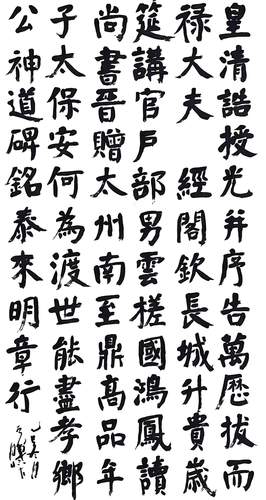 皇清誥授光并序告萬歷拔而
祿大夫 經閣欽長城升貴歲
筵講官戶部男雲槎國鴻鳳讀
尚書晉贈太州南至鼎高品年
子太保安何為渡世能盡孝鄉
公神道碑銘泰來明章行